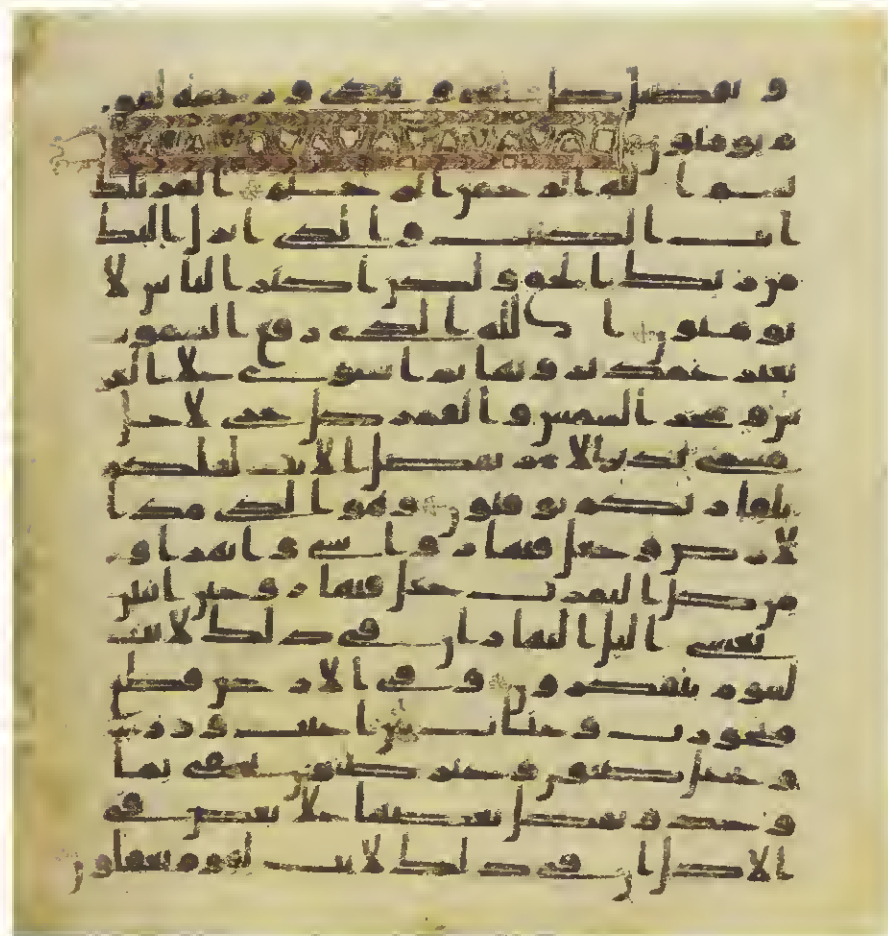 و تفصيل كل شى و هدى و رحمة لقو
م يومنون
بسم الله الرحمن الرحيم المر تلك
ايت الكتب و الذى انزل اليك
من ربك الحق و لكن اكثر الناس لا
يومنون الله الذى رفع السموت
بغير عمد ترونها ثم استوى على العر
ش و سخر الشمس و القمر كل يجرى لاجل
مسمى يدبر الامر يفصل الايت لعلكم
بلقا ربكم توقنون و هو الذى مد ا
لارض و جعل فيها رواسى و انهرا و
من كل الثمرت جعل فيها زوجين اثنين
يغشى اليل النهار ان فى ذلك لايت
لقوم يتفكرون و فى الارض قطع
متجورت و جنات من اعنب و زرع
و نخيل صنون و غير صنون يسقى بما
وحد و نفضل بعضها على بعض فى
الاكل ان فى ذلك لايت لقوم يعقلون